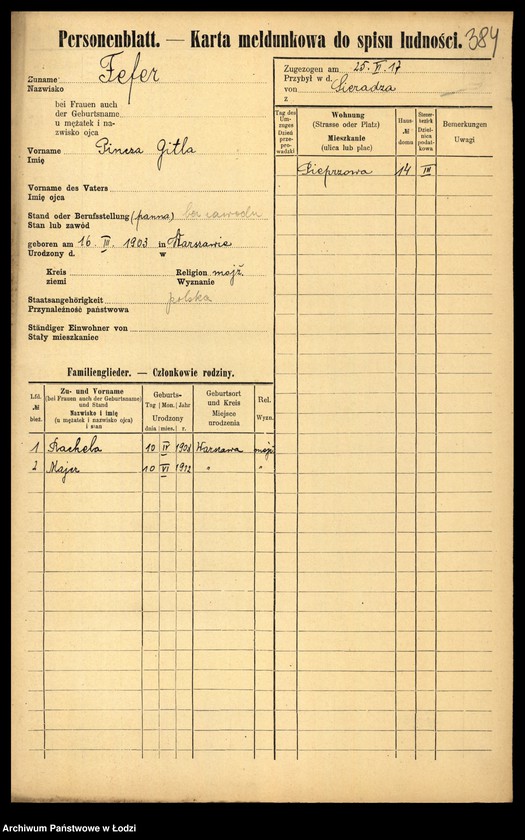 Personenblatt. — Karta meldunkowa do spisu ludności. 384
Zuname Fefer
Nazwisko
bei Frauen auch
der Geburtsname
u mężatek i na-
zwisko ojca
Vorname Gitla
Imię
Vorname des Vaters
Imię ojca
Stand oder Berufsstellung (panna) bez zawodu
Stan lub zawód
geboren am 16. III. 1903 in Warszawie
Urodzony d. w
Kreis Religion mojż.
ziemi Wyznanie
Staatsangehörigkeit polska
Przynależność państwowa
Ständiger Einwohner von
Stały mieszkaniec
Zugezogen am 25. VI. 17
Przybył w d.
von Sieradza
z
Tag des Um-
zuges
Dzień
prze-
prowadzki
Wohnung
(Strasse oder Platz)
Mieszkanie
(ulica lub plac)
Haus-
№
domu
Steuer-
bezirk
Dziel-
nica
podat-
kowa
Bemerkungen
Uwagi
Pieprzowa 14 III
Familienglieder. — Członkowie rodziny.
Lfd.
№
bież.
Zu- und Vorname
(bei Frauen auch der Geburtsname)
und Stand
Nazwisko i imię
(u mężatek i nazwisko ojca)
i stan
Geburts-
Tag Mon. Jahr
Urodzony
dnia mies. r.
Geburtsort
und Kreis
Miejsce
urodzenia
Rel.
Wyzn.
1 Rachela 10 IV 1908 Warszawa mojż
2 Majer 10 VI 1912 " "
Archiwum Państwowe w Łodzi